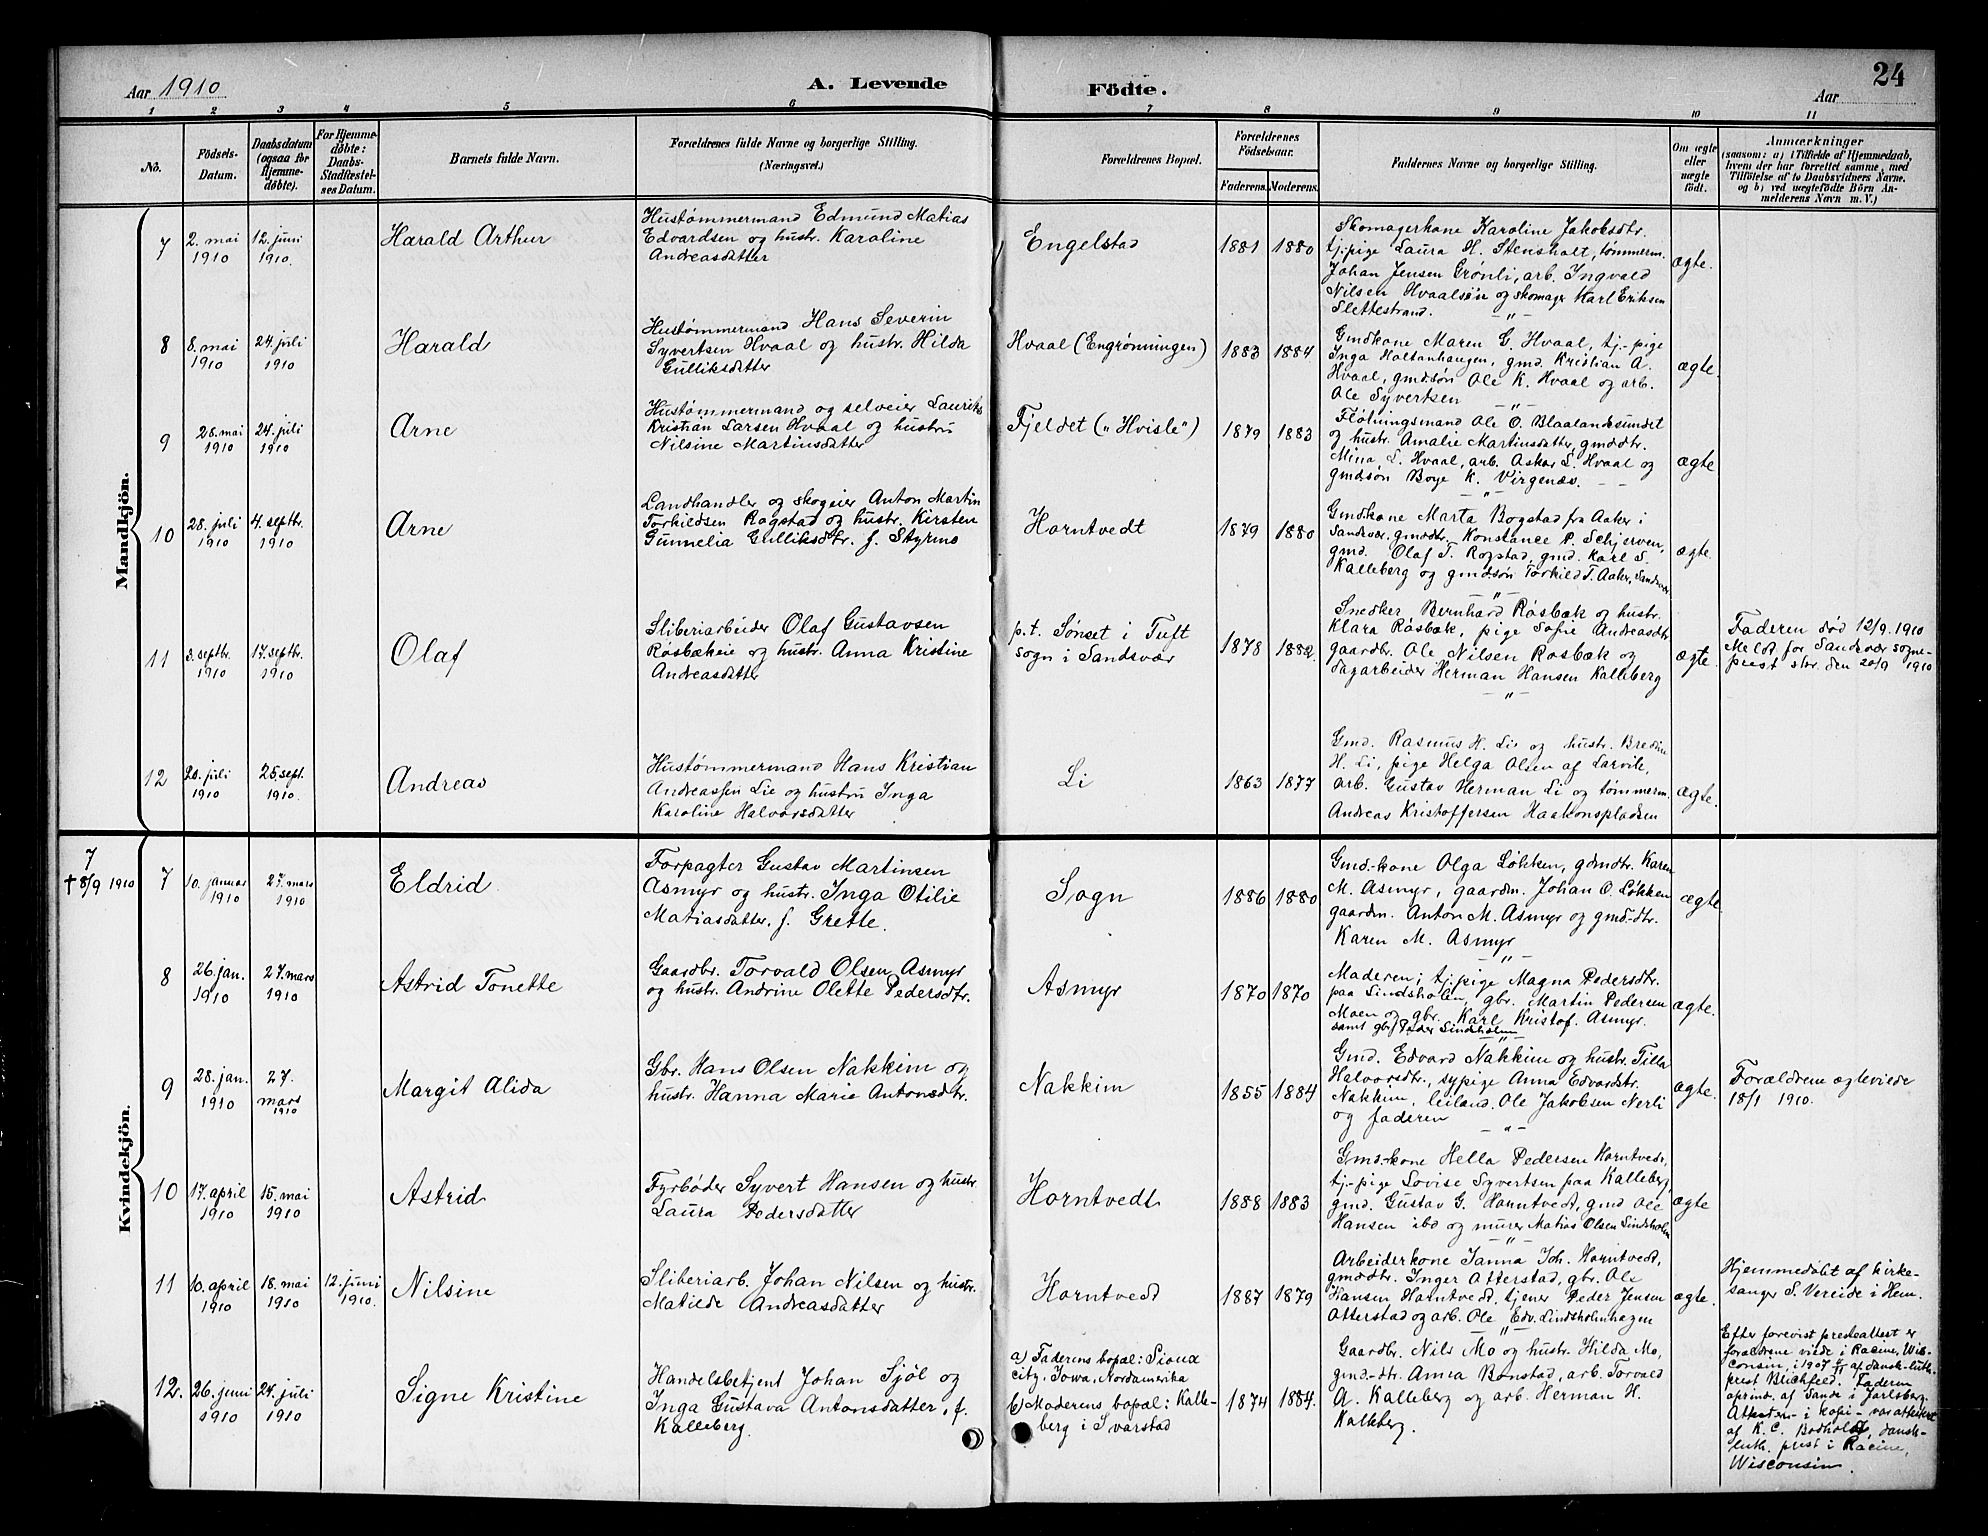 Aar 1910
A. Levende
Födte.
24
Aar
1 2 3 4 5 6 7 8 9 10 11
No.
Födsels-
Datum.
Daabsdatum
(ogsaa for
Hjemme-
döbte).
For Hjemme-
döbte:
Daabs-
Stadfæstel-
ses Datum.
Barnets fulde Navn.
Forældrenes fulde Navne og borgerlige Stilling.
(Næringsvei.)
Forældrenes Bopæl.
Forældrenes
Födselsaar.
Faderens. Moderens.
Faddernes Navne og borgerlige Stilling.
Om ægte
eller
uægte
født.
Anmærkninger
(saasom: a) i Tilfælde af Hjemmedaab,
hvem der har forrettet samme, med
Tilföielse af to Daabsvidners Navne,
og b) ved uægtefödte Börn An-
melderens Navn m. V.)
Mandkjön.
7
2. mai
1910
12. juni
1910.
Harald Arthur
Hustømmermand Edmund Matias
Edvardsen og hustr. Karoline
Andreasdatter
Engelstad
1881 1880
Skomagerkone Karoline Jakobsdtr.
tj.pige Laura H. Stensholt, tømmerm.
Johan Jensen Grønli, arb. Ingvald
Nilsen Hvaalsøie og skomager Karl Eriksen
Slettestrand.
ægte.
8
8. mai
1910
24. juli
1910
Harald
Hustømmermand Hans Severin
Syvertsen Hvaal og hustr. Hilda
Gulliksdatter
Hvaal (Engrønningen)
1883 1884
Gmdkone Maren G. Hvaal, tj.-pige
Inga Holtanhaugen, gmd. Kristian A.
Hvaal, gmdsøn Ole K. Hvaal og arb.
Ole Syvertsen
ægte.
9
28. mai
1910
24. juli
1910
Arne
Hustømmermand og selveier Laurits
Kristian Larsen Hvaal og hustru
Nilsine Martinsdatter
Fjeldet („Hvisle")
1879 1883
Fløtningsmand Ole O. Blaalandssundet
og hustr. Amalie Martinsdatter, gmddtr.
Mina L. Hvaal, arb. Askar L. Hvaal og
gmdsøn Boye K. Virgenæs.
ægte
10
28. juli
1910
4. septbr.
1910
Arne
Landhandler og skogeier Anton Martin
Torkildsen Rogstad og hustr. Kirsten
Gunnelia Gulliksdtr. f. Styrmo
Horntvedt
1879 1880
Gmdkone Marta Bogstad fra Aaker i
Sandsvær, gmddtr. Konstance P. Schjerven,
gmd. Olaf T. Rogstad, gmd. Karl S.
Kalleberg og gmdsøn Torkild T. Aaker, Sandsvær
ægte
11
3. septbr.
1910
17. septbr.
1910
Olaf
Sliberiarbeider Olaf Gustavsen
Røsbækeie og hustr. Anna Kristine
Andreasdatter
p.t. Sønset i Tuft
sogn i Sandsvær
1878 1882.
Snedker Bernhard Røsbæk og hustr.
Klara Røsbæk, pige Sofie Andreasdtr
gaardbr. Ole Nilsen Røsbæk og
dagarbeider Herman Hansen Kalleberg
ægte.
Faderen død 12/9. 1910
Meldt for Sandsvær sogne-
prest skr. den 20/9 1910
12
20. juli
1910
25. sept.
1910
Andreas
Hustømmermand Hans Kristian
Andreassen Lie og hustru Inga
Karoline Halvorsdatter
Li
1863 1877
Gmd. Rasmus H. Li og hustr. Bredine
H. Li, pige Helga Olsen af Larvik,
arb. Gustav Herman Li og tømmerm.
Andreas Kristoffersen Haakonspladsen
ægte.
Kvindekjön.
7
† 8/9 1910
7
10. januar
1910
27. mars
1910
Eldrid
Forpagter Gustav Martinsen
Asmyr og hustr. Inga Otilie
Matiasdatter, f. Grette.
Sogn
1886 1880
Gmd.-kone Olga Løkken, gdmdtr. Karen
M. Asmyr, gaardm. Johan O. Løkken
gaardm. Anton M. Asmyr og gmd.-dtr.
Karen M. Asmyr
ægte
8
26. jan.
1910
27. mars
1910
Astrid Tonette
Gaardbr. Torvald Olsen Asmyr
og hustr. Andrine Olette Pedersdtr.
Asmyr
1870 1870
Moderen; tj.pige Magna Pedersdtr.
paa Lindsholm, gbr. Martin Pedersen
Moen og gbr. Karl Kristof. Asmyr.
samt gbr. Peder Lindsholm
ægte.
9
28. jan.
1910
27.
mars
1910
Margit Alida
Gbr. Hans Olsen Nakkim og
hustr. Hanna Marie Antonsdtr.
Nakkim
1855 1884
Gmd. Edvard Nakkim og hustr. Tilla
Halvorsdtr., sypige Anna Edvardstr.
Nakkim, leiland. Ole Jakobsen Nerli
og faderen
ægte.
Forældrene ægteviede
18/1 1910.
10
17. april
1910
15. mai
1910
Astrid
Fyrbøder Syvert Hansen og hustr.
Laura Pedersdatter
Horntvedt
1888 1883
Gmd.-kone Hella Pedersen Horntvedt,
tj.-pige Lovise Syvertsen paa Kalleberg
gmd. Gustav G. Horntvedt, gmd Ole
Hansen ibd og murer Matias Olsen Lindsholm
ægte
11
10. april
1910
18. mai
1910
12. juni
1910.
Nilsine
Sliberiarb. Johan Nilsen og hustr.
Matilde Andreasdatter
Horntvedt
1887 1879
Arbeiderkone Janna Joh. Horntvedt,
gmddtr. Inger Atterstad, gbr. Ole
Hansen Horntvedt, tjener Peder Jensen
Atterstad og arb. Ole Edv. Lindsholmhagen
ægte.
Hjemmedøbt af kirke-
sanger S. Vereide i Hem.
12.
26. juni
1910
24. juli
1910
Signe Kristine
Handelsbetjent Johan Sjøl og
Inga Gustava Antonsdatter, f.
Kalleberg.
a) Faderens bopæl: Sioux
city, Iowa, Nordamerika
b) Moderens bopæl: Kalle-
berg i Svarstad
1874 1884.
Gaardbr. Nils Mo og hustr. Hilda Mo,
gmd.-dtr. Anna Bonstad, arb. Torvald
A. Kalleberg og arb. Herman H.
Kalleberg.
Efter forevist presteattest er
forældrene viede i Racine, Wis-
consin, i 1907 af dansk-luth.
prest Blichfeld. Faderen
oprind. af Sande i Jarlsberg.
Attesten - i kopi - var attesteret
af K. C. Bodholdt, dansk-
luth. prest i Racine,
Wisconsin.